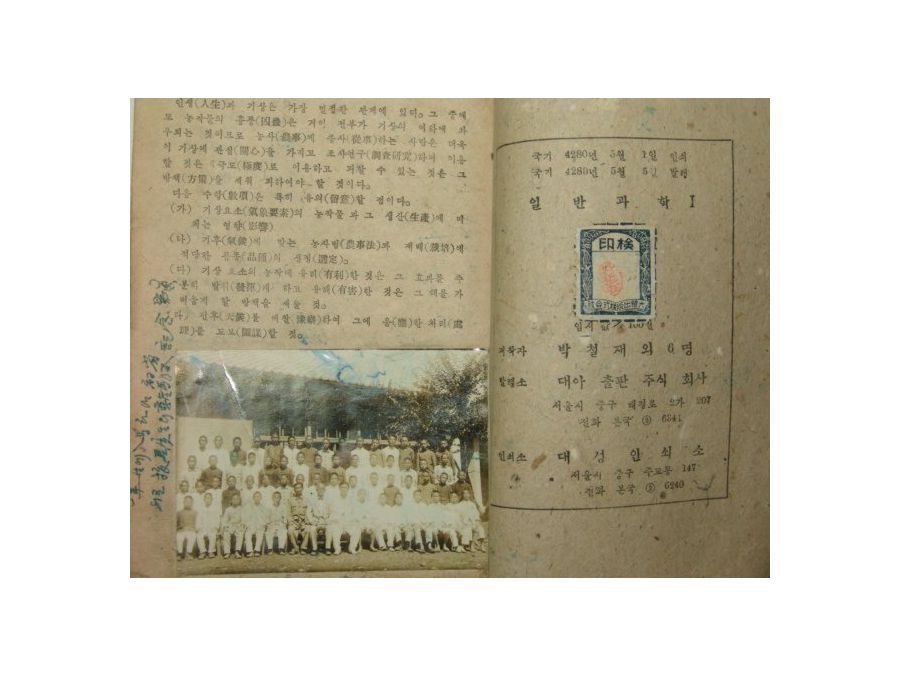 인생(人生)과 기상은 가장 밀접한 관계에 있다. 그 중에
도 농작물의 풍흉(凶豊)은 거의 전부가 기상의 여하에 좌
우되는 것이므로 농사(農事)에 종사(從事)하는 사람은 더욱
이 기상에 관심(關心)을 가지고 조사연구(調査硏究)하여 이용
할 것은 극도(極度)로 이용하고 피할 수 있는 것은 그
방책(方策)을 세워 피하여야 할 것이다.
다음 수항(數項)은 특히 유의(留意)할 점이다.
(가) 기상요소(氣象要素)의 농작물과 그 생산(生產)에 미
치는 영향(影響)
(나) 기후(氣候)에 맞는 농사법(農事法)과 재배(栽培)에
적당한 품종(品種)의 선정(選定).
(다) 기상 요소의 농작에 유리(有利)한 것은 그 효과를 충
분히 발휘(發揮)케 하고 유해(有害)한 것은 그 해를 가
볍게 할 방책을 세울 것.
천후(天候)를 예찰(豫察)하여 그에 응(應)한 처리(處
理)를 도모(圖謀)할 것.
국기 4280년 5월 1일 인쇄
국기 4280년 5월 5일 발행
일 반 과 학 I
印檢
임시 값 100원
저작자 박 철 재 외 6 명
발행소 대아 출판 주식 회사
서울시 중구 태평로 2가 207
전화 본국 ③ 6341
인쇄소 대 성 인 쇄 소
서울시 중구 147
전화 본국 ③ 6240